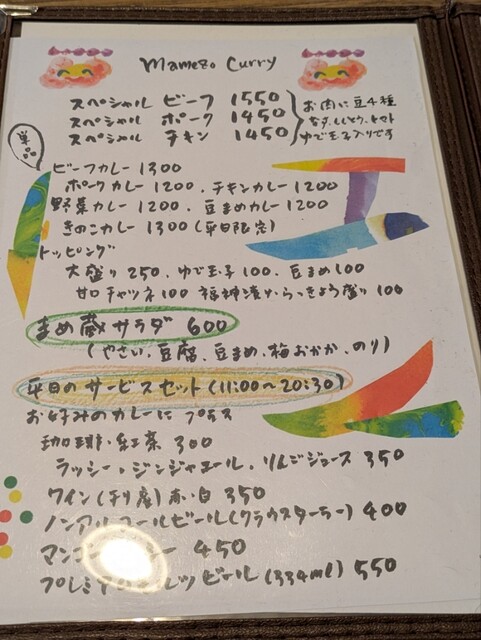 mamezo Curry
スペシャル ビーフ 1550
スペシャル ポーク 1450
スペシャル チキン 1450
お肉に豆4種
なす、ししとう、トマト
ゆで玉子入りです
単品
ビーフカレー 1300
ポークカレー 1200、チキンカレー 1200
野菜カレー 1200、豆まめカレー 1200
きのこカレー 1300 (平日限定)
トッピング
大盛り 250、ゆで玉子 100、豆まめ 100
甘口チャツネ 100 福神漬け・らっきょう盛り 100
まめ蔵サラダ 600
(やさい、豆腐、豆まめ、梅おかか、のり)
平日のサービスセット (11:00~20:30)
お好みのカレーに プラス
珈琲・紅茶 300
ラッシー・ジンジャエール・りんごジュース 350
ワイン (チリ産) 赤・白 350
ノンアルコールビール (クラウスターラー) 400
マンゴ ー 450
プレミ ルツビール (334ml) 550